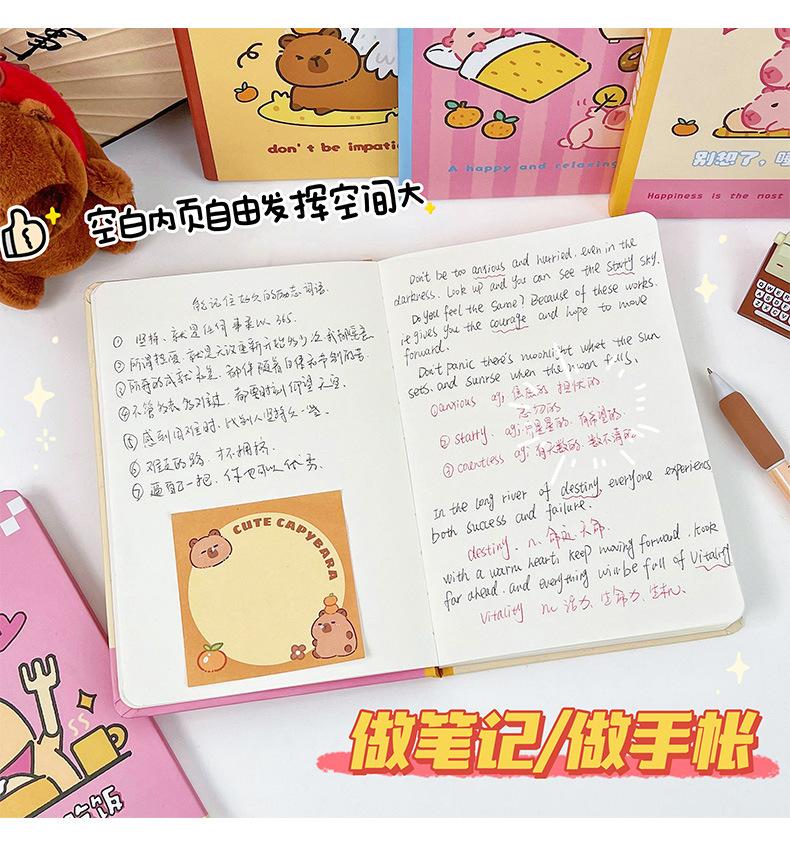 don't be impati
A happy and relaxing
别想了，
Happiness is the most
空白内页自由发挥空间大
能记住好久的励志词语.
① 坚持，就是任何事乘以365.
② 所谓
③
④ 不管
⑤ 感到困难时，比别人坚持久一些
⑥ 难走的路，才不拥挤
⑦ 逼自己一把，你也可以优秀
CUTE CAPYBARA
Don't be too anxious and hurried, even in the
darkness. Look up and you can see the starty sky.
Do you feel the same? Because of these works.
it gives you the courage and hope to move
forward.
Don't panic there's moonlight whet the sun
sets, and sunrise when the moon falls.
①anxious adj. 焦虑的 担忧的.
② starty. adj. 有希望的.
③ countless adj. 有无数的. 数不清的.
In the long river of destiny, everyone experiences
both success and failure.
destiny. n. 命运、天命.
with a warm heart, keep moving forward. Look
far ahead. and everything will be full of vitality
vitality n. 活力、生命力、生机.
吃饭
做笔记/做手帐